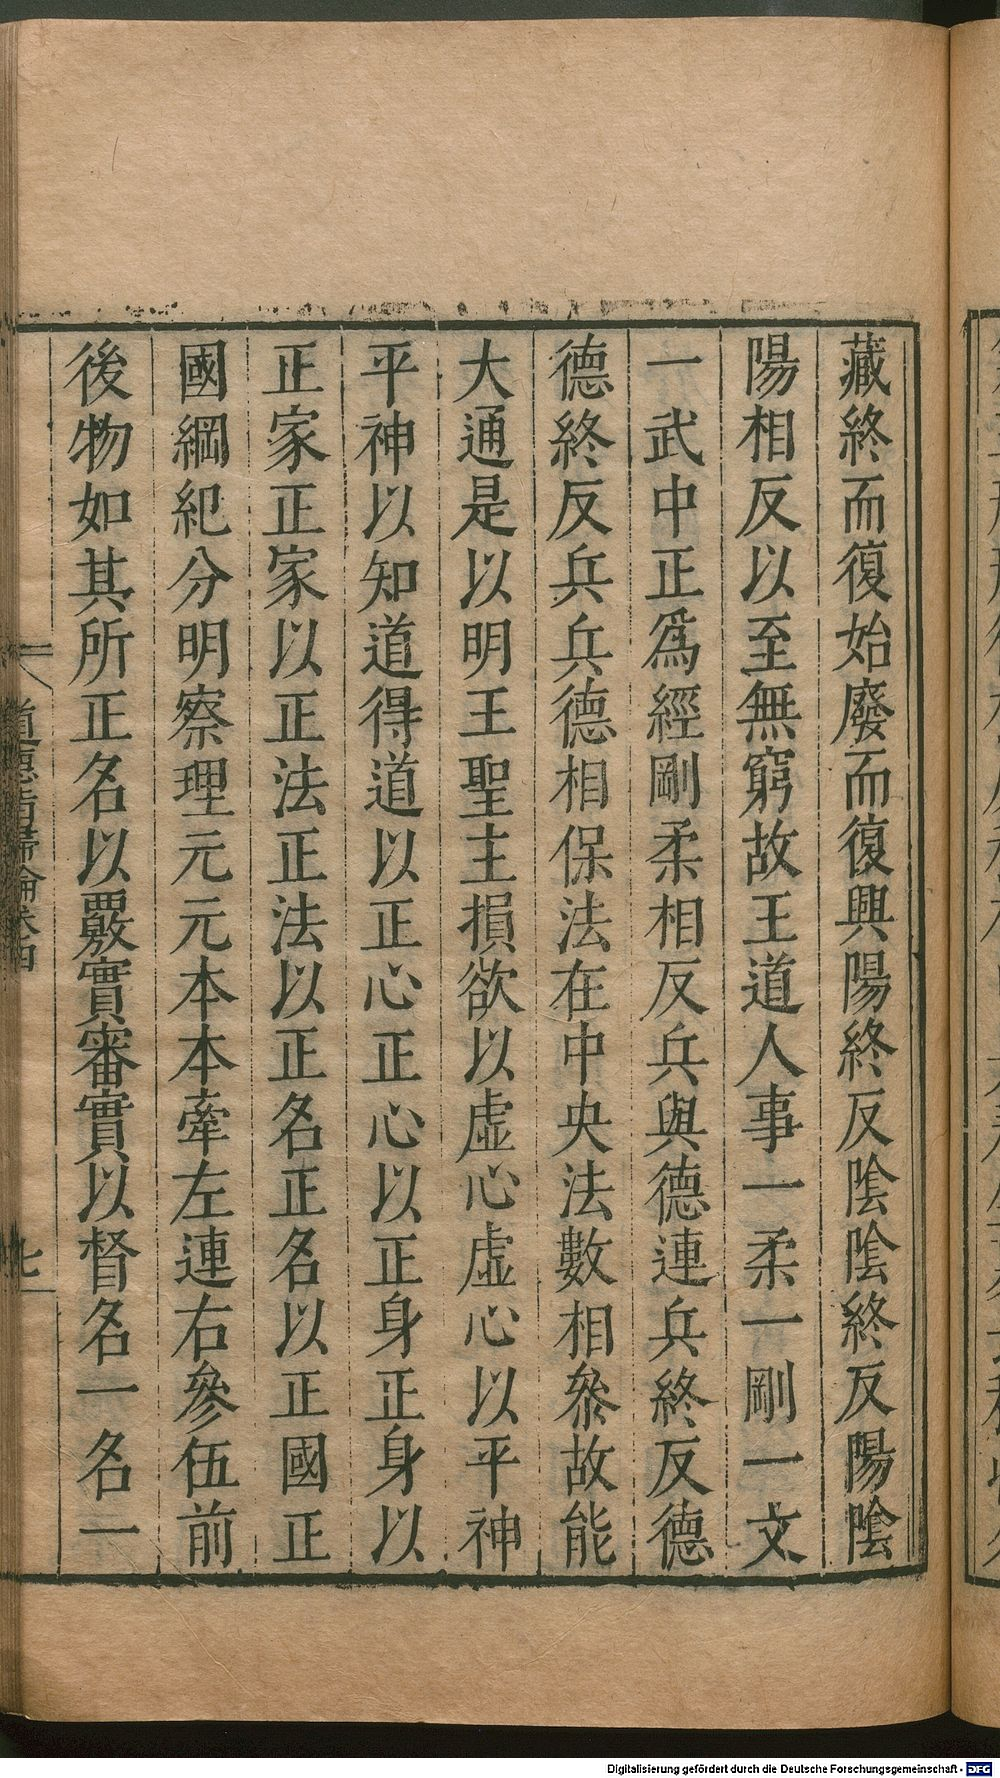 藏終而復始廢而復興陽終反陰陰終反陽陰
陽相反以至無窮故王道人事一柔一剛一文
一武中正爲經剛柔相反兵與德連兵終反德
德終反兵兵德相保法在中央法數相叅故能
大通是以明王聖主損欲以虛心虛心以平神
平神以知道得道以正心正心以正身正身以
正家正家以正法正法以正名正名以正國正
國綱紀分明察理元元本本牽左連右參伍前
後物如其所正名以覈實審實以督名一名一
道德指歸論卷四
七
Digitalisierung gefördert durch die Deutsche Forschungsgemeinschaft - DFG